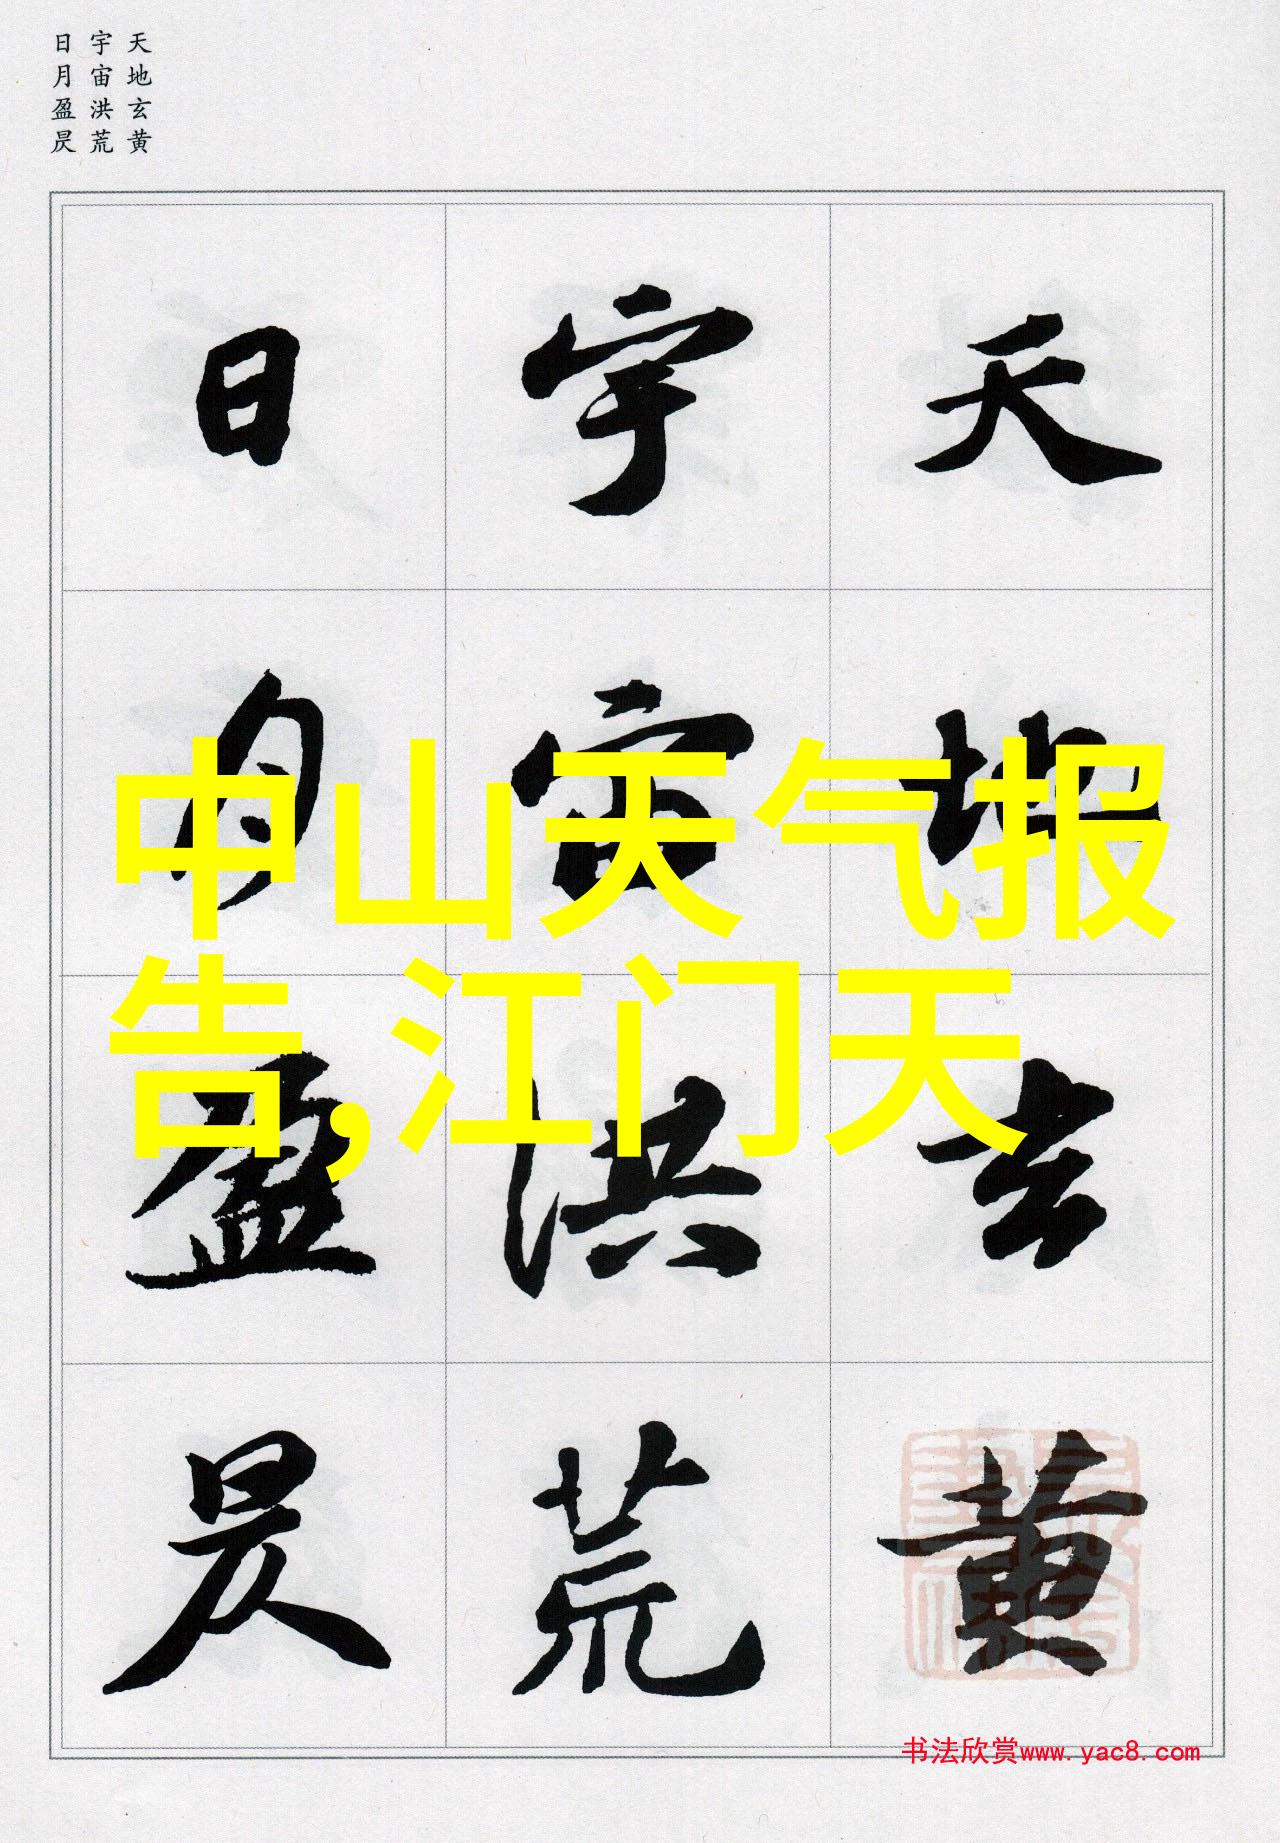 天地玄黄
宇宙洪荒
日月盈昃
天地玄黄
宇宙洪荒
日月盈昃
中山天气报
告,江门天
书法欣赏www.yac8.com